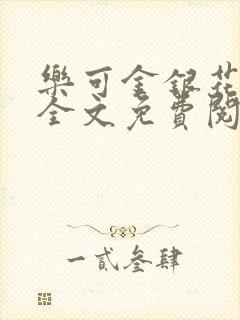 樂可金銀花
全文免費閱
一貳叄肆